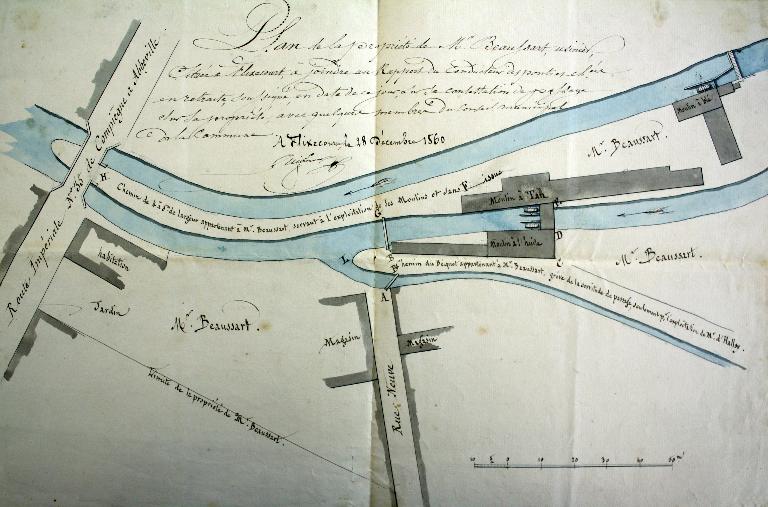 Plan de la propriété de Mr. Beaussart usinier
Située à Flixecourt, à joindre au Rapport du Conducteur des ponts et ch.ées
en retraite soussigné en date de ce jour sur la contestation de passage
sur la propriété, avec quelques membres du Conseil municipal
de la Commune
A Flixecourt le 28 Décembre 1860
Route Impériale N.° 35 de Compiègne à Abbeville
H
Chemin de 4 à 5m de largeur appartenant à Mr. Beaussart, servant à l'exploitation de ses Moulins et sans issue
Moulin à blé
Mr. Beaussart.
Moulin à Tan
G
F
E
D
Moulin à l'huile
C
B
L
A
Chemin du Becquet appartenant à Mr. Beaussart, grevé de la servitude de passage seulement pr. l'exploitation de Mr. d'Halloy
Mr. Beaussart.
habitation
Jardin
Mr. Beaussart.
Magasin
Magasin
Rue Neuve
Limite de la propriété de Mr. Beaussart.
10 5 0 10 20 30 40 50 m